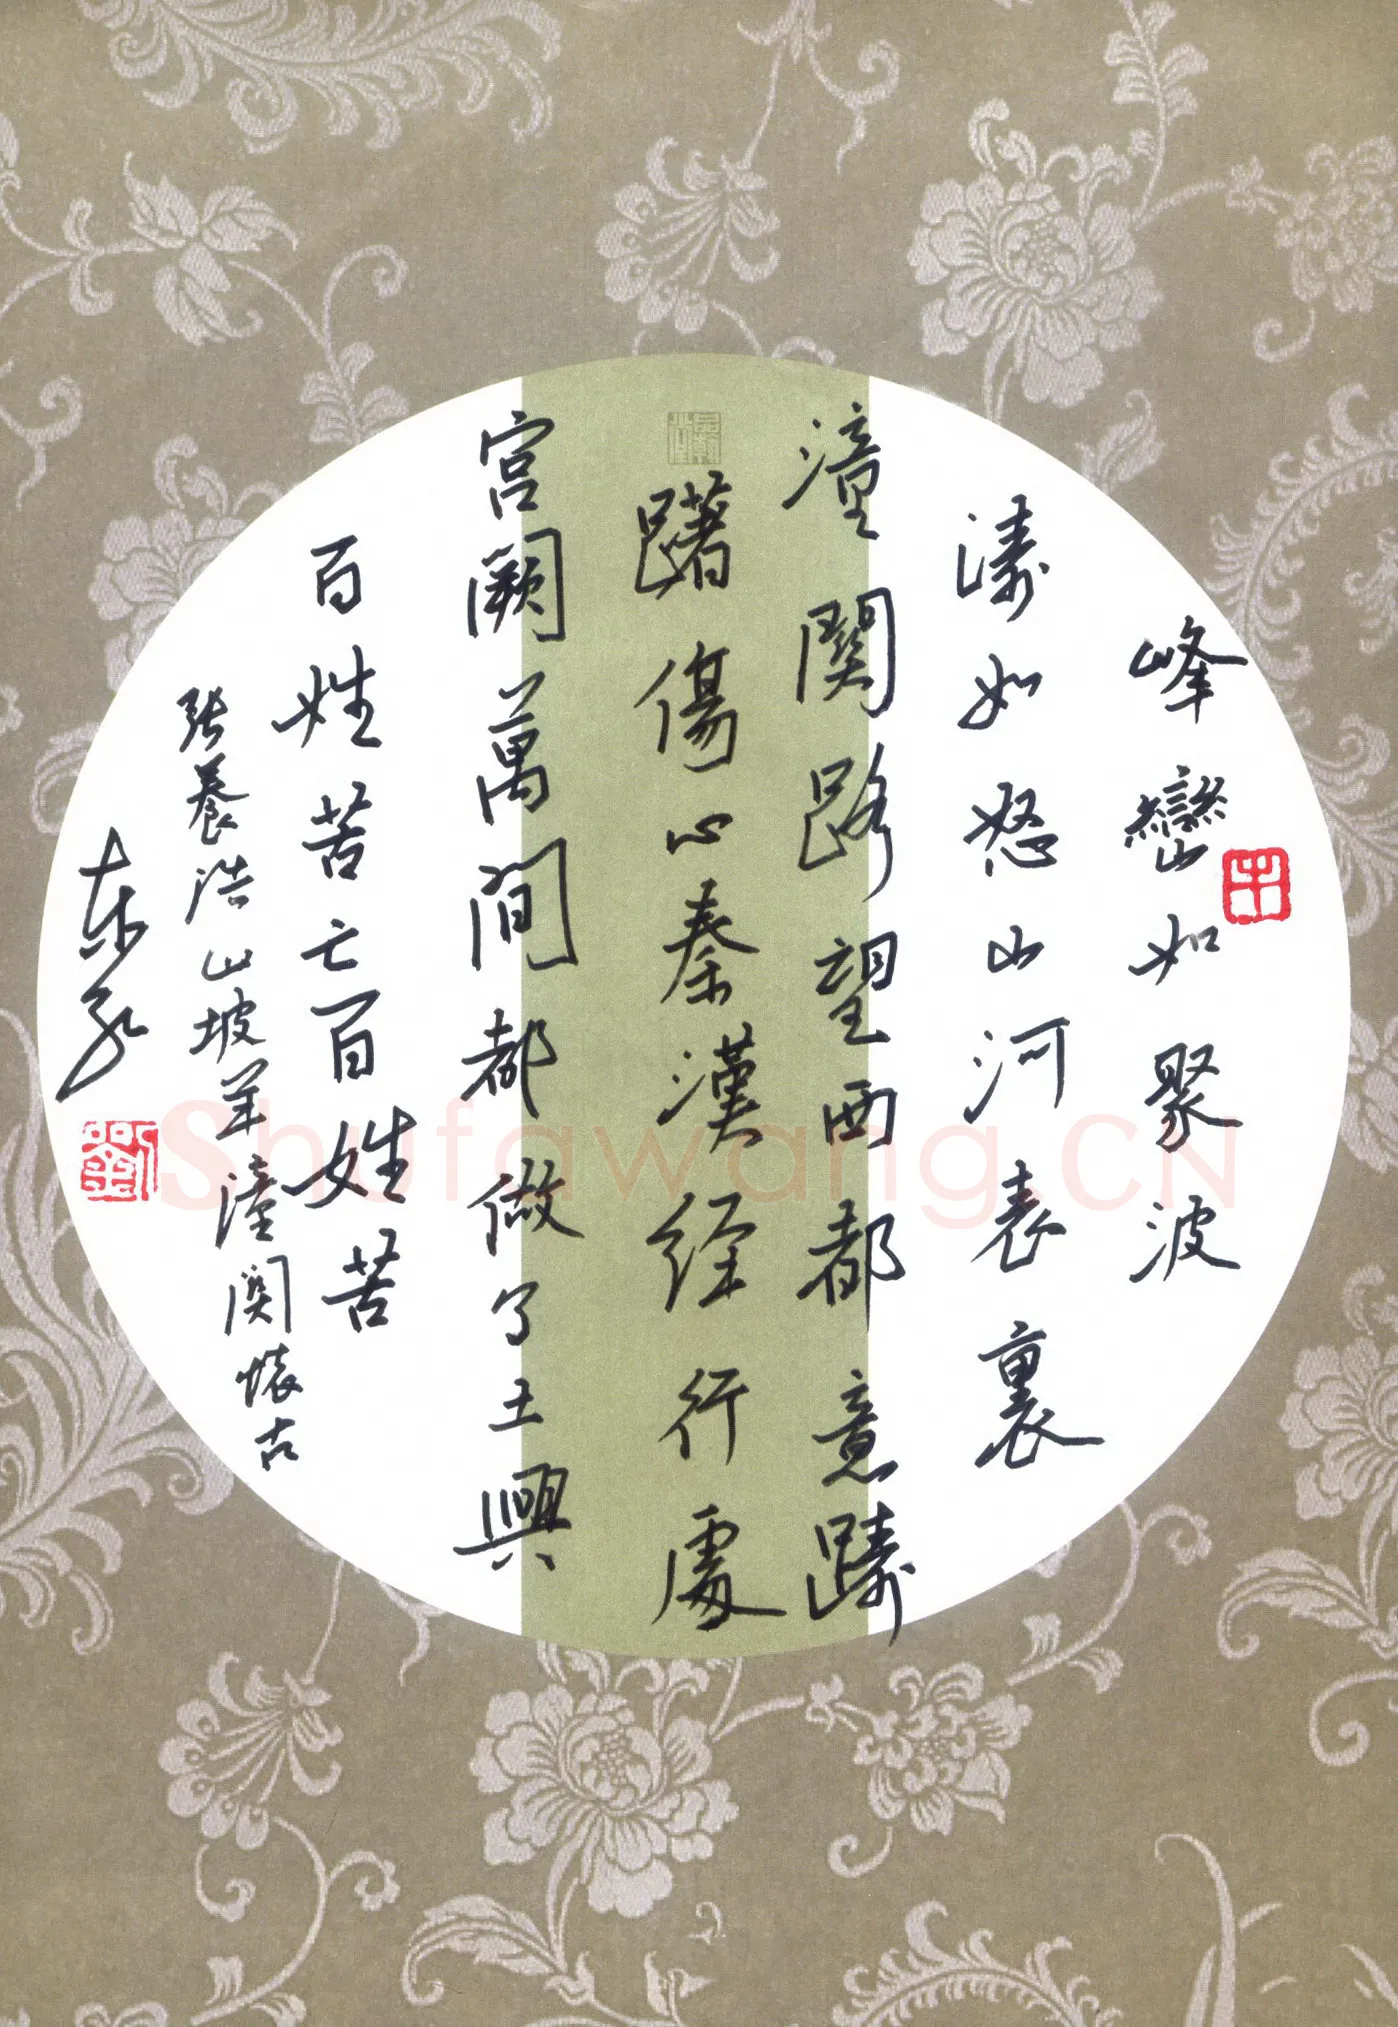 峰巒如聚波
濤如怒山河表裏
潼關路望西都意躊
躇傷心秦漢經行處
宮闕萬間都做了土興
百姓苦亡百姓苦
張養浩山坡羊潼關懷古
Shufawang.CN